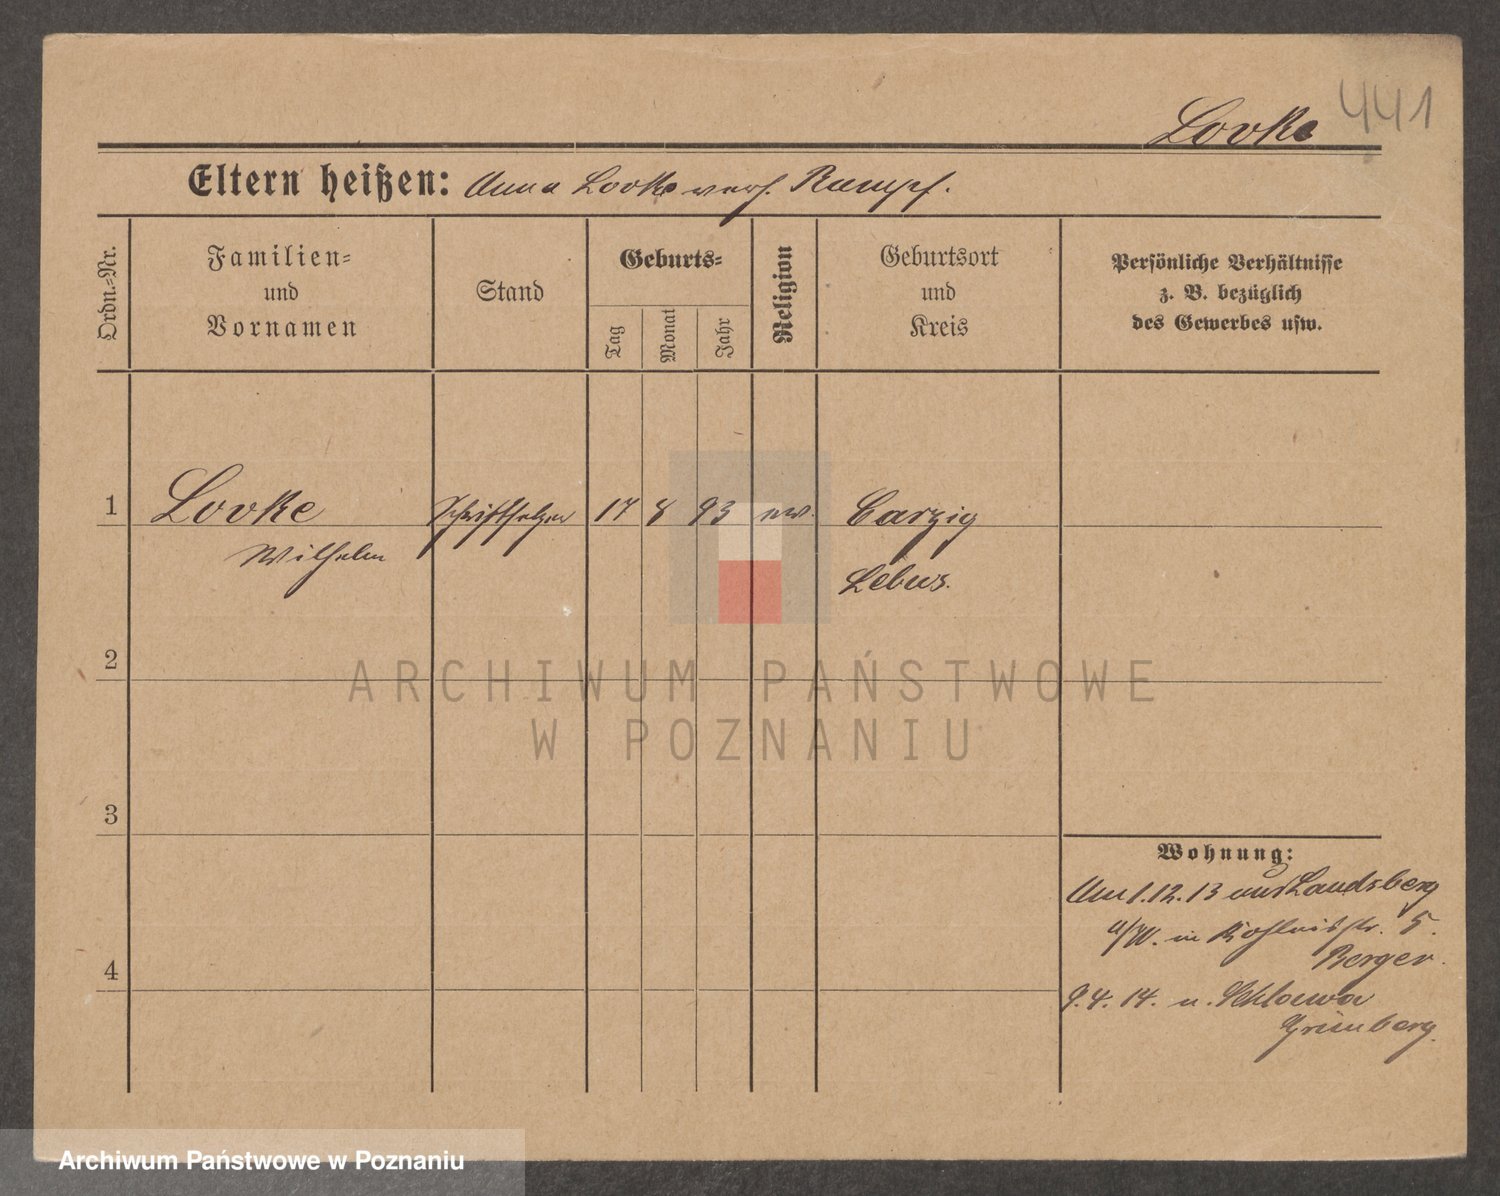 441
Looke
Eltern heißen: Anna Looke verh. Rumpf.
Ordn.-Nr.
Familien-
und
Vornamen
Stand
Geburts-
Tag
Monat
Jahr
Religion
Geburtsort
und
Kreis
Persönliche Verhältnisse
z. B. bezüglich
des Gewerbes usw.
1 Looke Schriftsetzer 17 8 93 ev. Carzig
Wilhelm Lebus.
2
ARCHIWUM PAŃSTWOWE
W POZNANIU
3
Wohnung:
Am 1.12.13 aus Landsberg
a/W. in str. 5.
Berger.
4
9.4.14. n.
Grünberg.
Archiwum Państwowe w Poznaniu